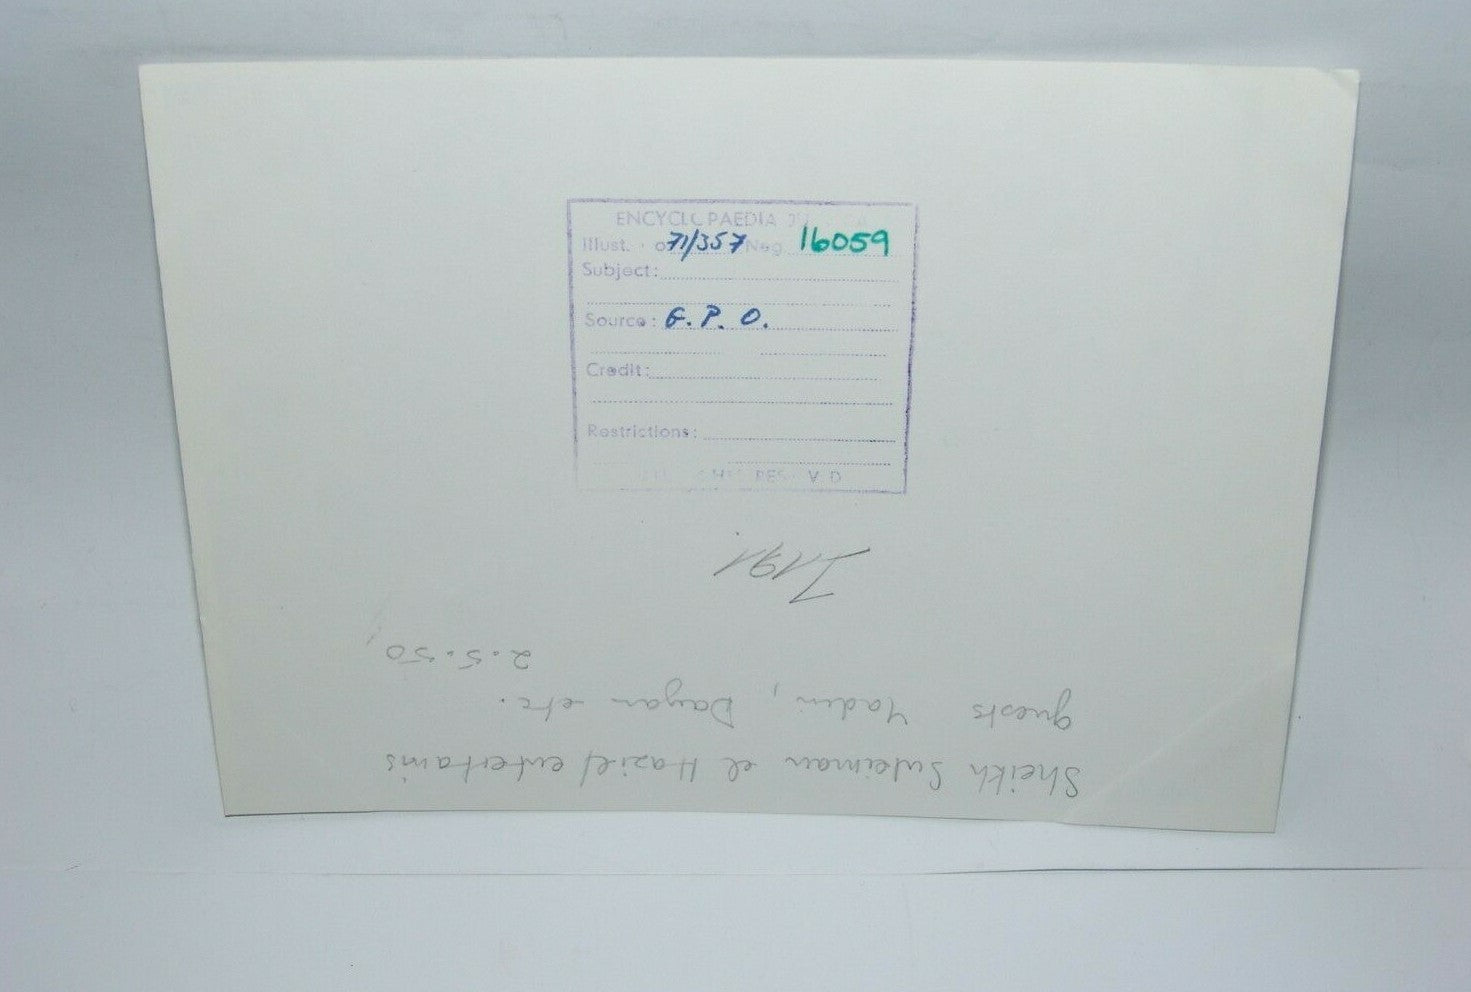 ENCYCLOPAEDIA
Illust. 71/357 Neg. 16059
Subject:
Source: G.P.O.
Credit:
Restrictions:
Sheikh Suleiman el Haziel entertains
guests Yadin, Dayan etc.
2.5.50